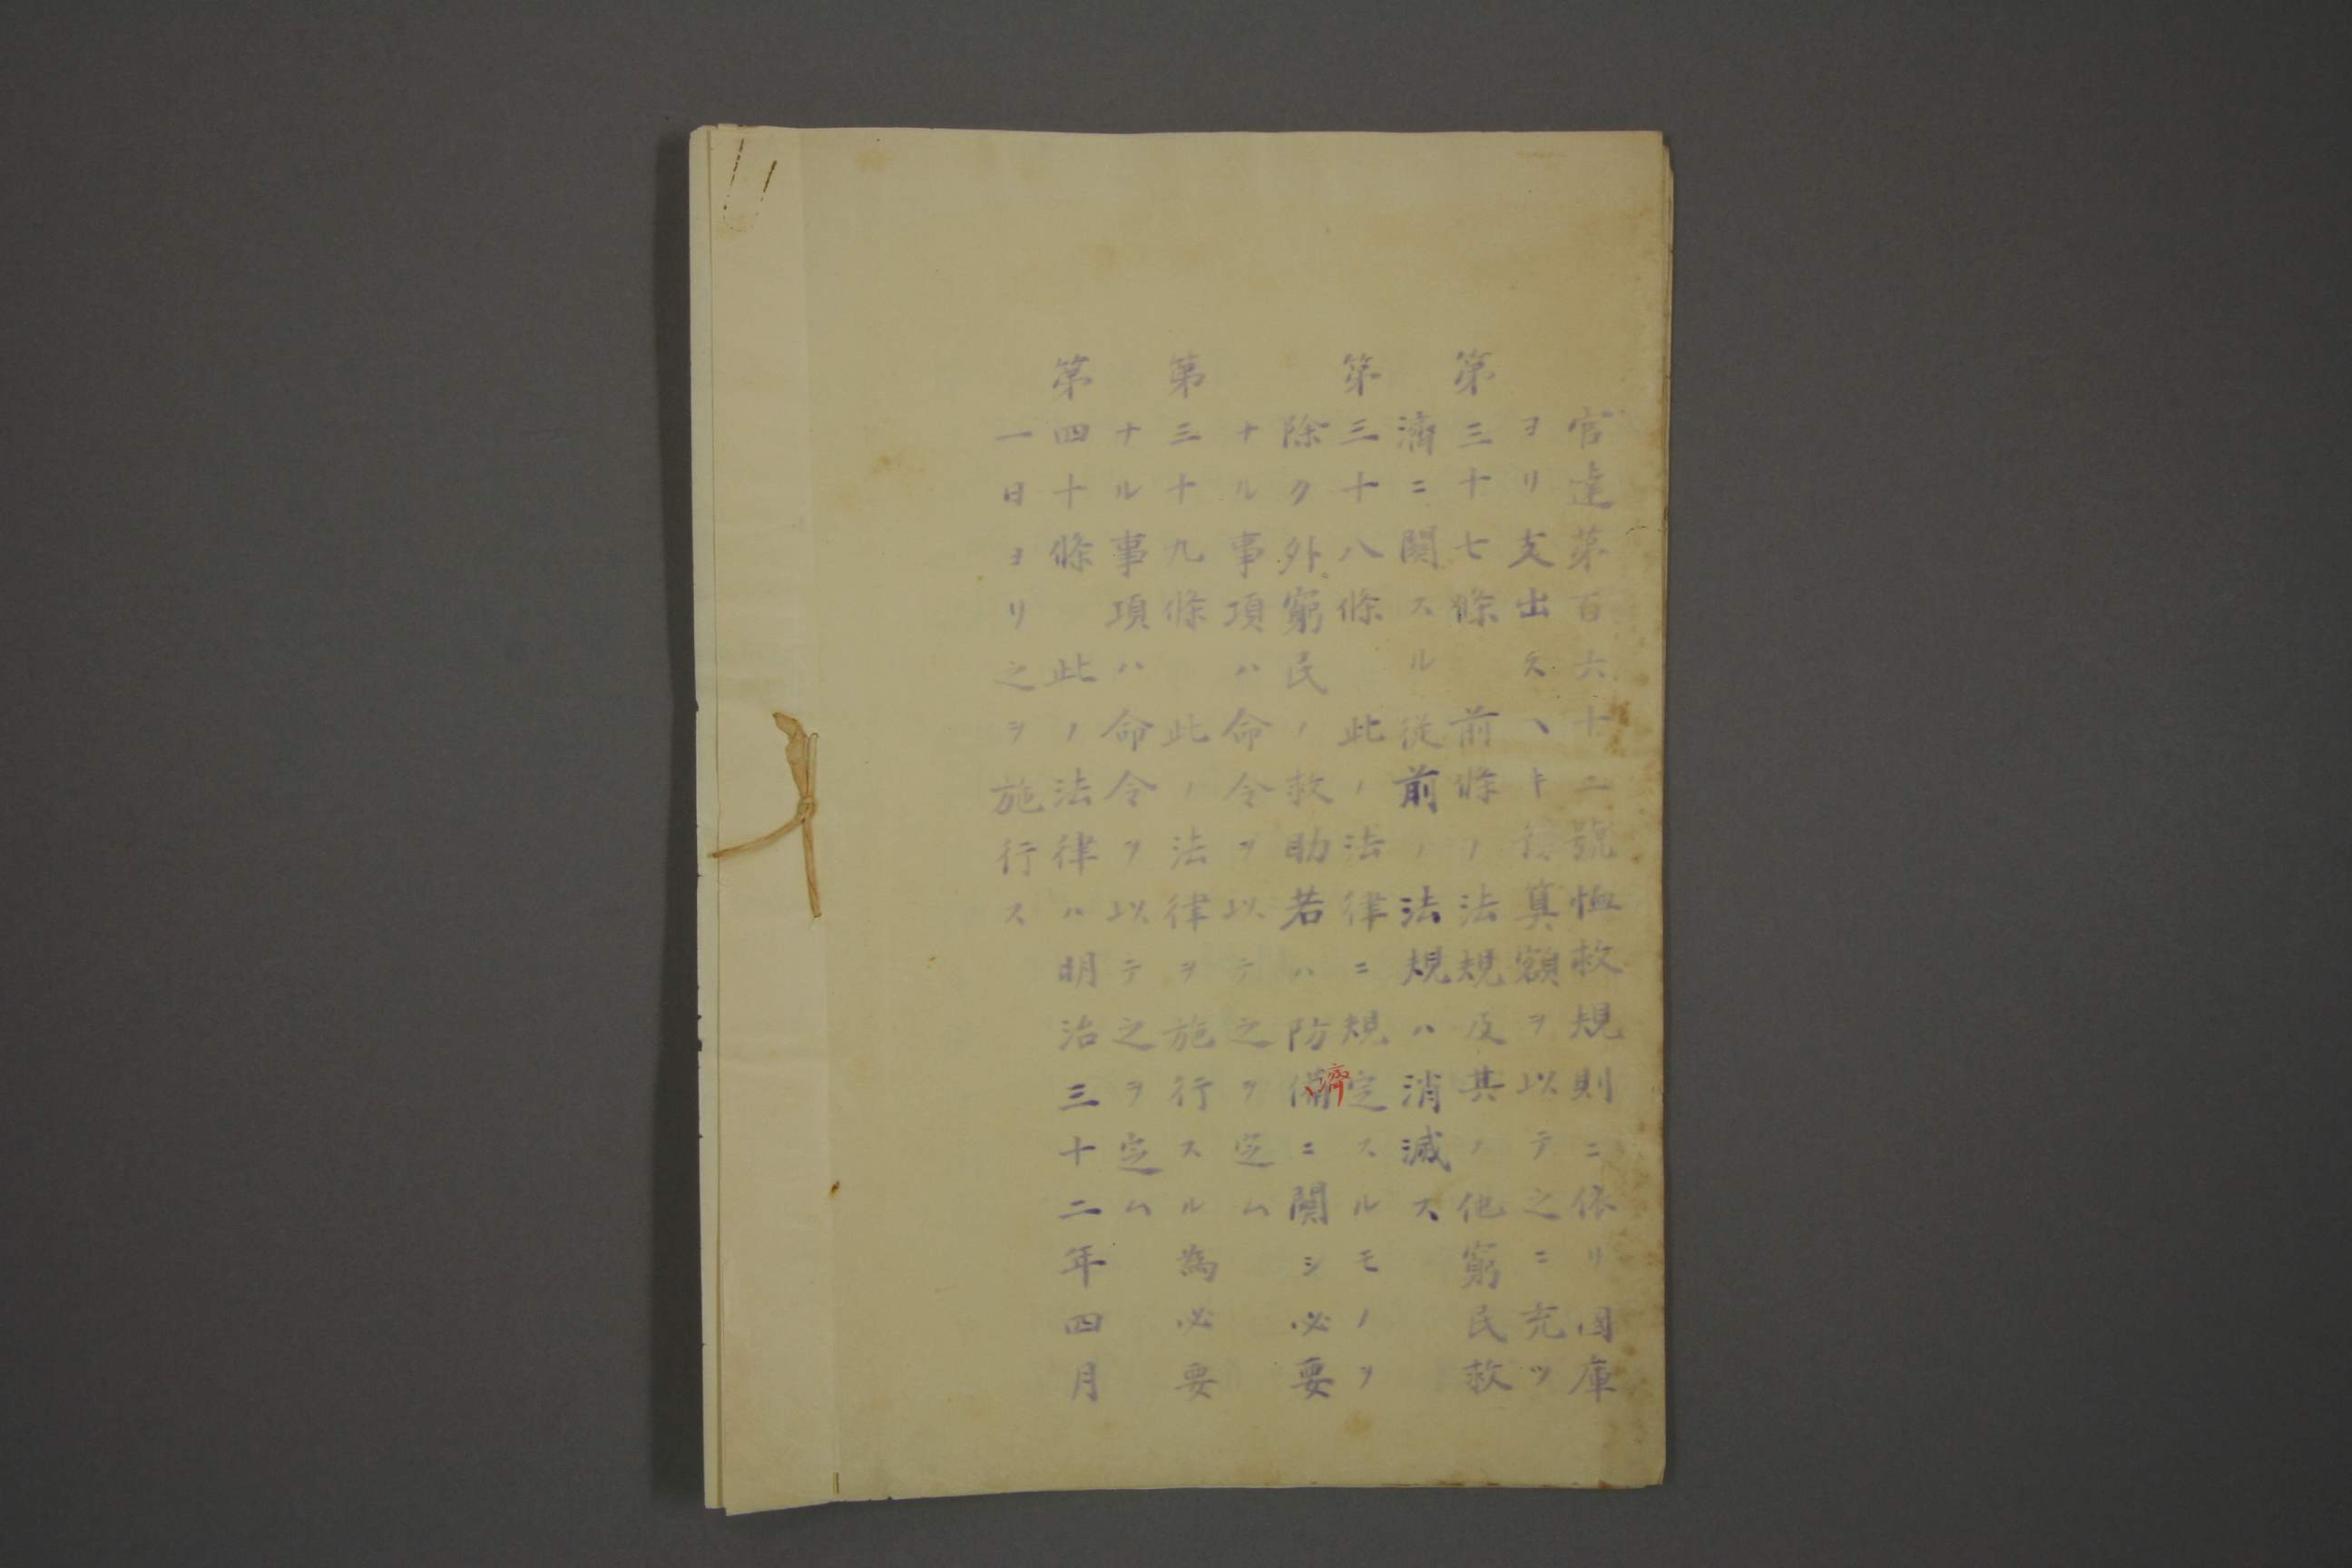 官達第百六十二號恤救規則ニ依リ國庫
ヨリ支出スヘキ算額ヲ以テ之ニ充ツ
第三十七條　前條ノ法規及其ノ他窮民救
濟ニ関スル従前ノ法規ハ消滅ス
第三十八條　此ノ法律ニ規定スルモノヲ
除ク外窮民ノ救助若ハ防備ニ関シ必要
濟
ナル事項ハ命令ヲ以テ之ヲ定ム
第三十九條　此ノ法律ヲ施行スル為必要
ナル事項ハ命令ヲ以テ之ヲ定ム
第四十條　此ノ法律ハ明治三十二年四月
一日ヨリ之ヲ施行ス